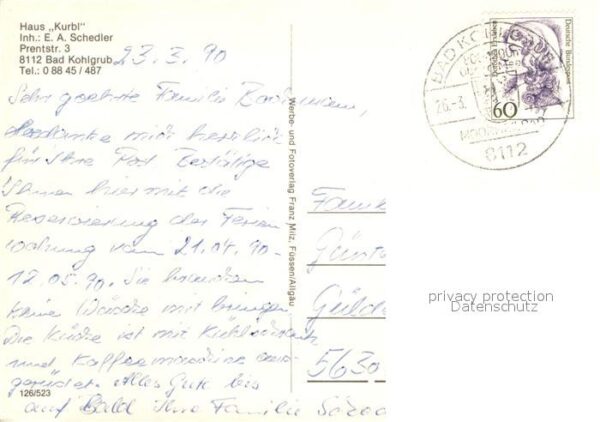 Haus „Kurbl"
Inh.: E. A. Schedler
Prentstr. 3
8112 Bad Kohlgrub
Tel.: 0 88 45 / 487
23.3.90
Sehr geehrte Familie
bedanke mich herzlich
für Ihre Post Bestätige
Ihnen hiermit die
Reservierung der Ferien
wohnung vom 21.04.90-
12.05.90. Sie brauchen
keine Wäsche mit bringen.
Die Küche ist mit Kühlschrank
und Kaffeemaschine aus-
gerüstet. Alles Gute bis
auf Bald Ihre Familie
126/523
Werbe- und Fotoverlag Franz Milz, Füssen/Allgäu
BAD KOHLGRUB
26.-3.
8112
Deutsche Bundespost
60
Günt
Gülde
5630
privacy protection
Datenschutz